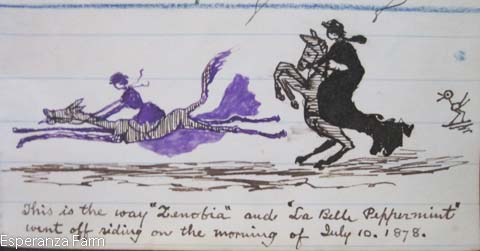 This is the way "Zenobia" and "La Belle Peppermint"
went off riding on the morning of July 10. 1878.
Esperanza Farm